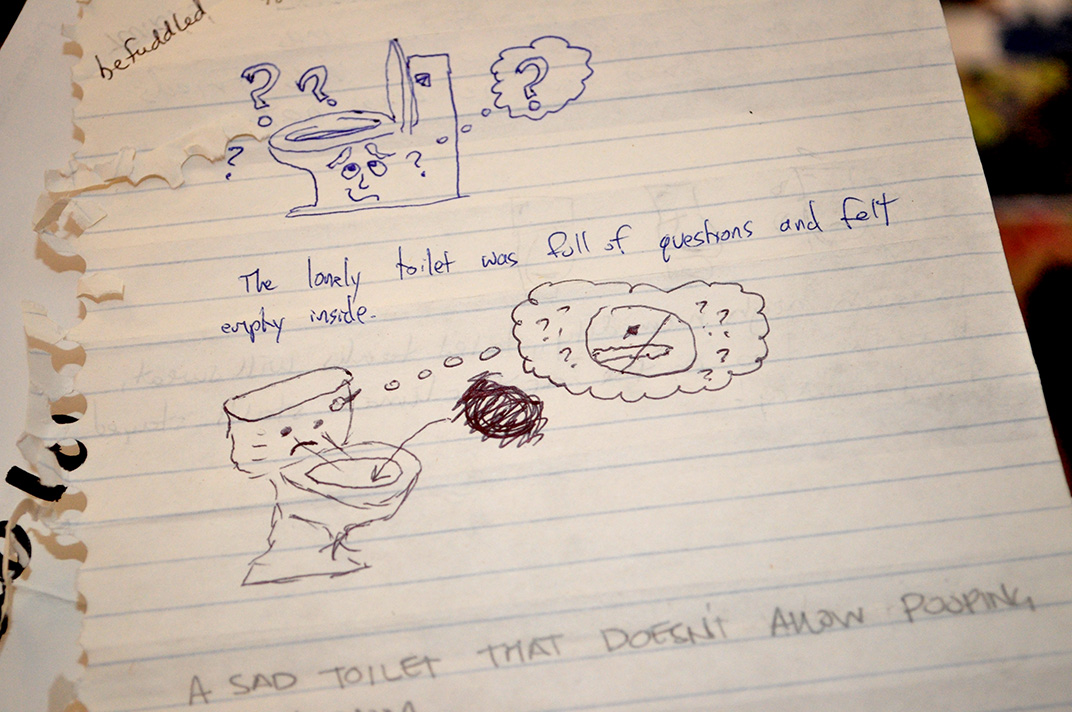 befuddled
? ? ?
? ?
?
The lonely toilet was full of questions and felt
empty inside.
? ? ? ?
? ? ?
A SAD TOILET THAT DOESN'T ALLOW POOPING